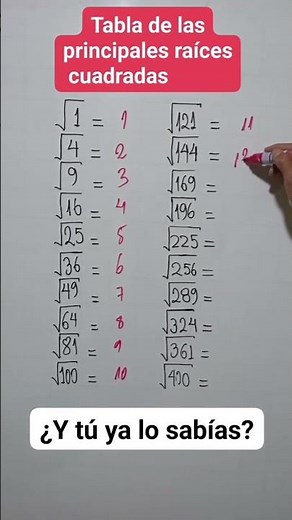 Tabla de las
principales raíces
cuadradas
√1 = 1
√4 = 2
√9 = 3
√16 = 4
√25 = 5
√36 = 6
√49 = 7
√64 = 8
√81 = 9
√100 = 10
√121 = 11
√144 = 12
√169 =
√196 =
√225 =
√256 =
√289 =
√324 =
√361 =
√400 =
¿Y tú ya lo sabías?